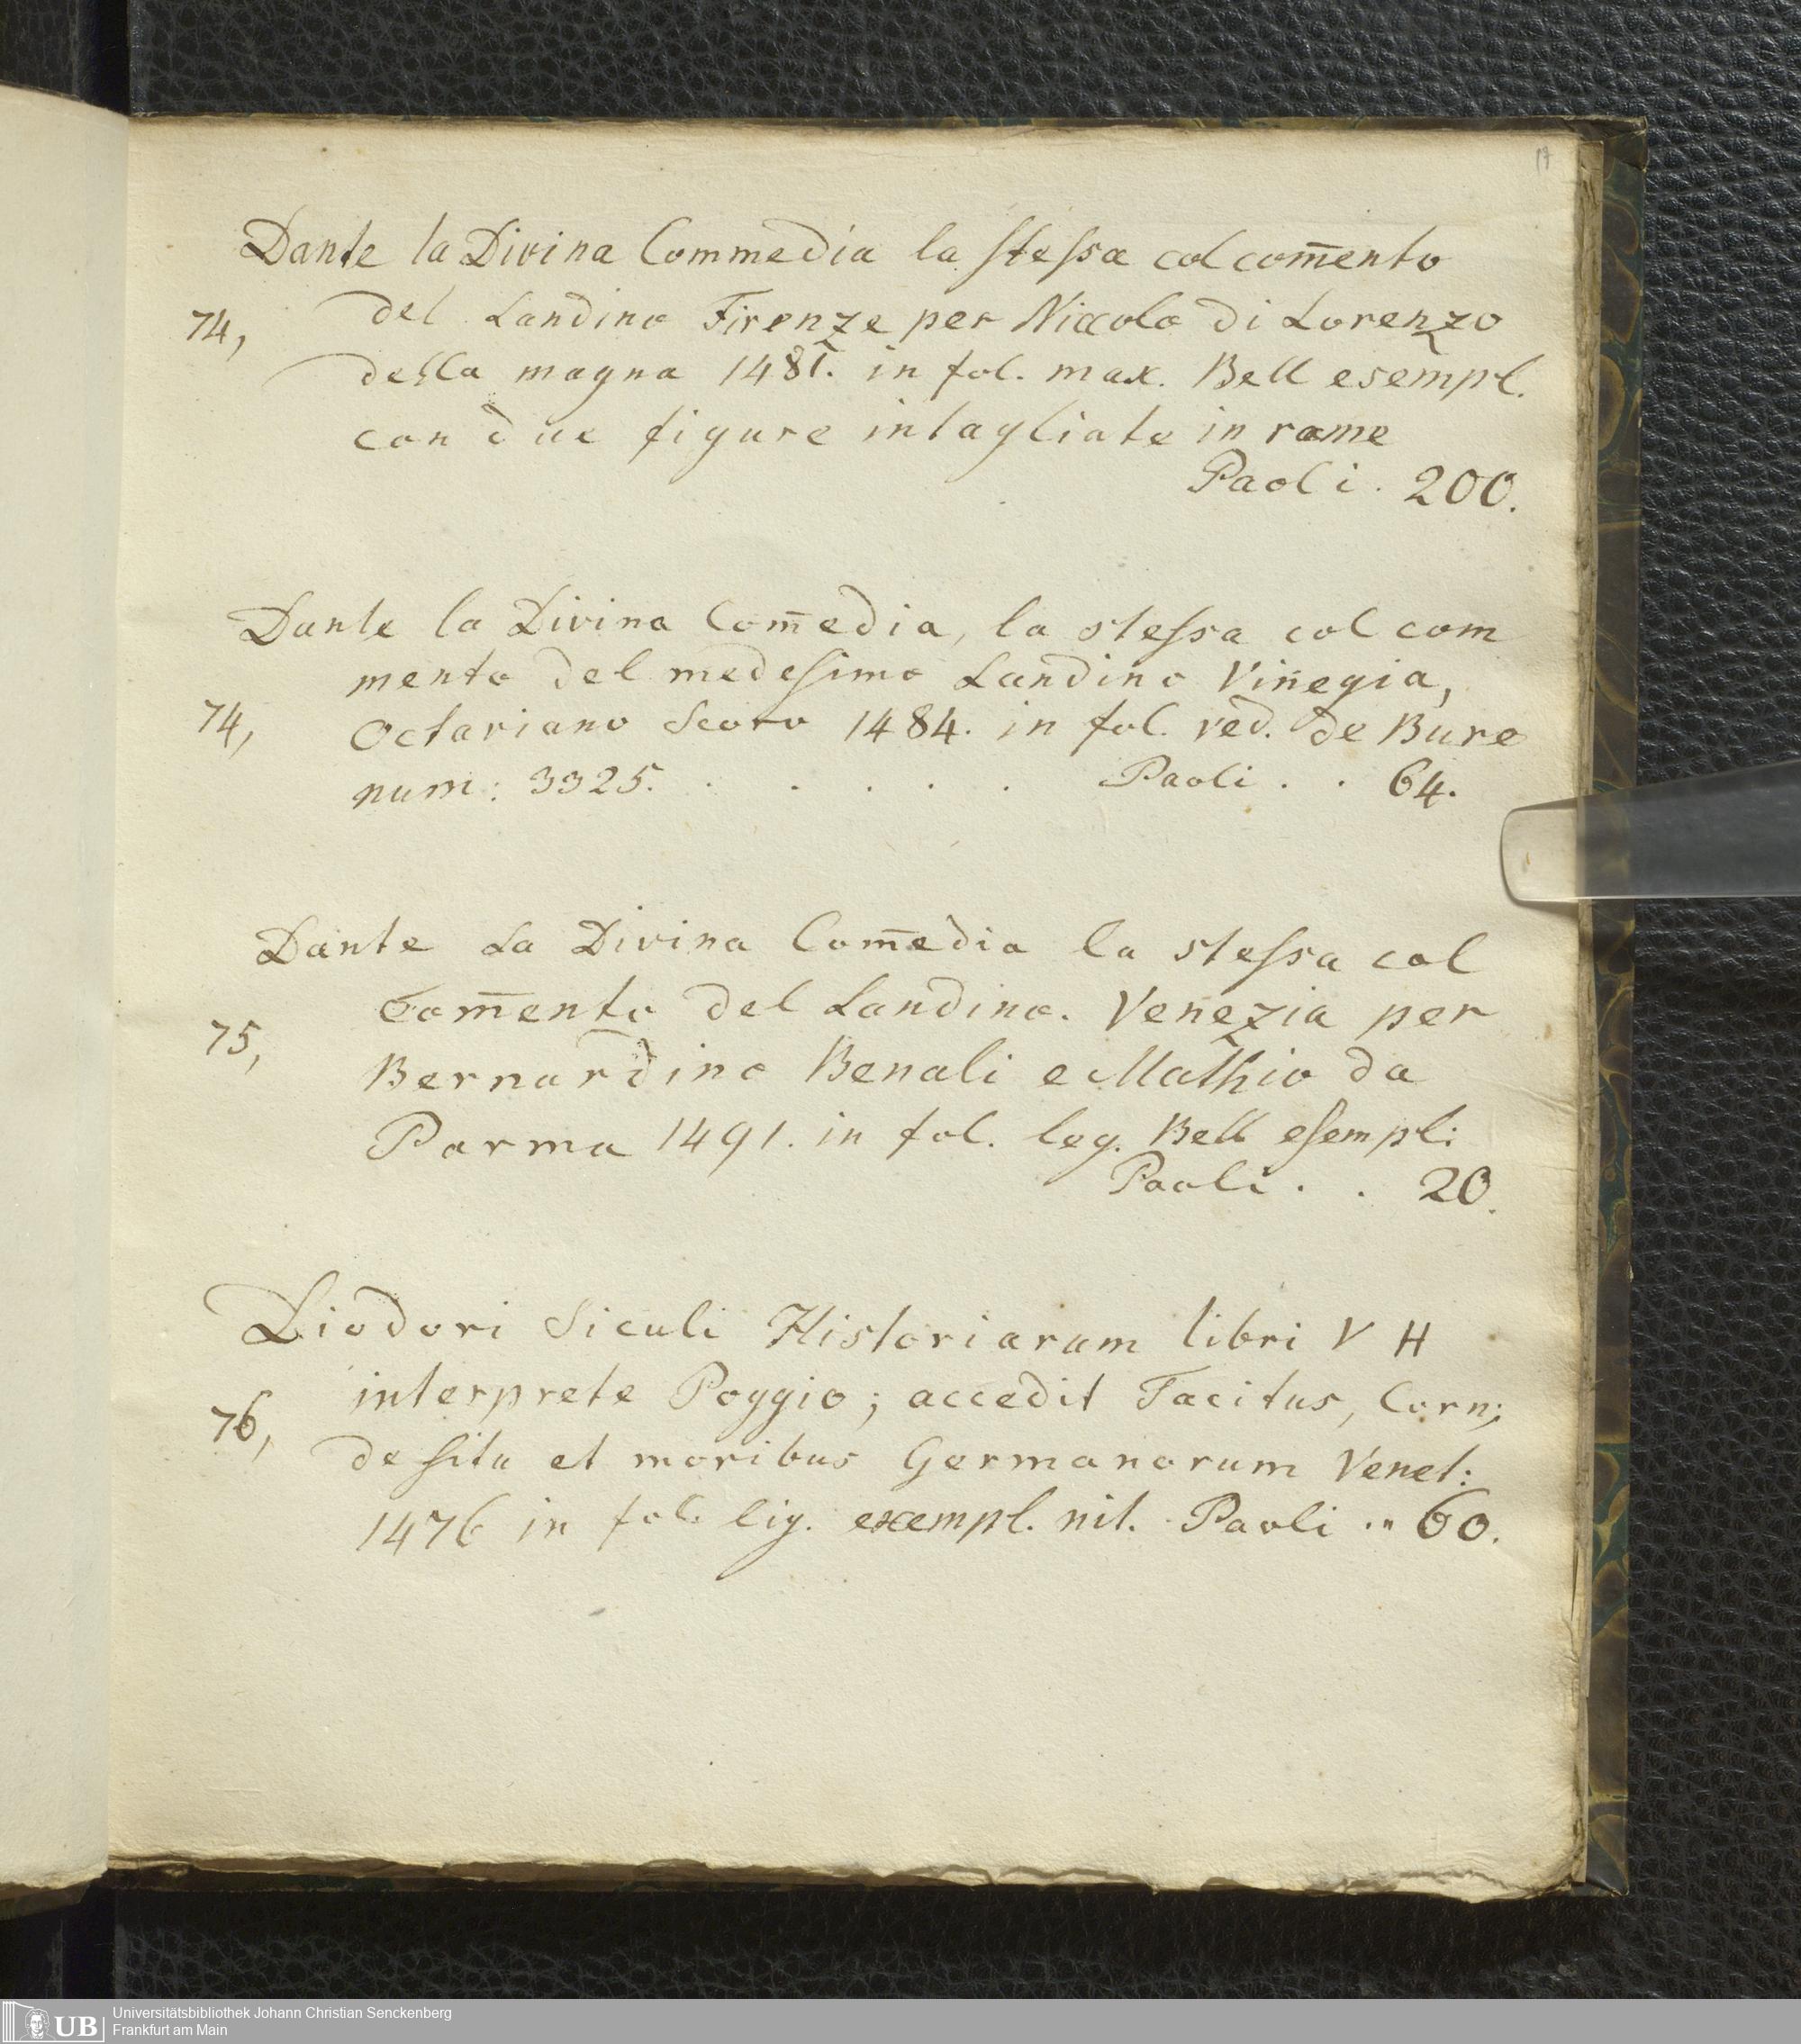 17
Dante la Divina Commedia la stessa col com̅ento
74, del Landino Firenze per Niccolo di Lorenzo
della magna 1481. in fol. max. Bell esempl.
con due figure intagliate in rame
Paoli . 200.
Dante la Divina Com̅edia, la stessa col com
mento del medesimo Landino Vinegia,
74, Octaviano Scoto 1484. in fol. ved. de Bure
num: 3325. . . . . . Paoli . . 64.
Dante La Divina Com̅edia la stessa col
Com̅ento del Landino. Venezia per
75, Bernardino Benali e Mathio da
Parma 1491. in fol. leg. Bell esempl:
Paoli . . 20.
Diodori Siculi Historiarum libri V H
interprete Poggio; accedit Tacitus, Corn;
76, de situ et moribus Germanorum Venet:
1476 in fol. lig. exempl. nit. Paoli .. 60.
UB Universitätsbibliothek Johann Christian Senckenberg
Frankfurt am Main